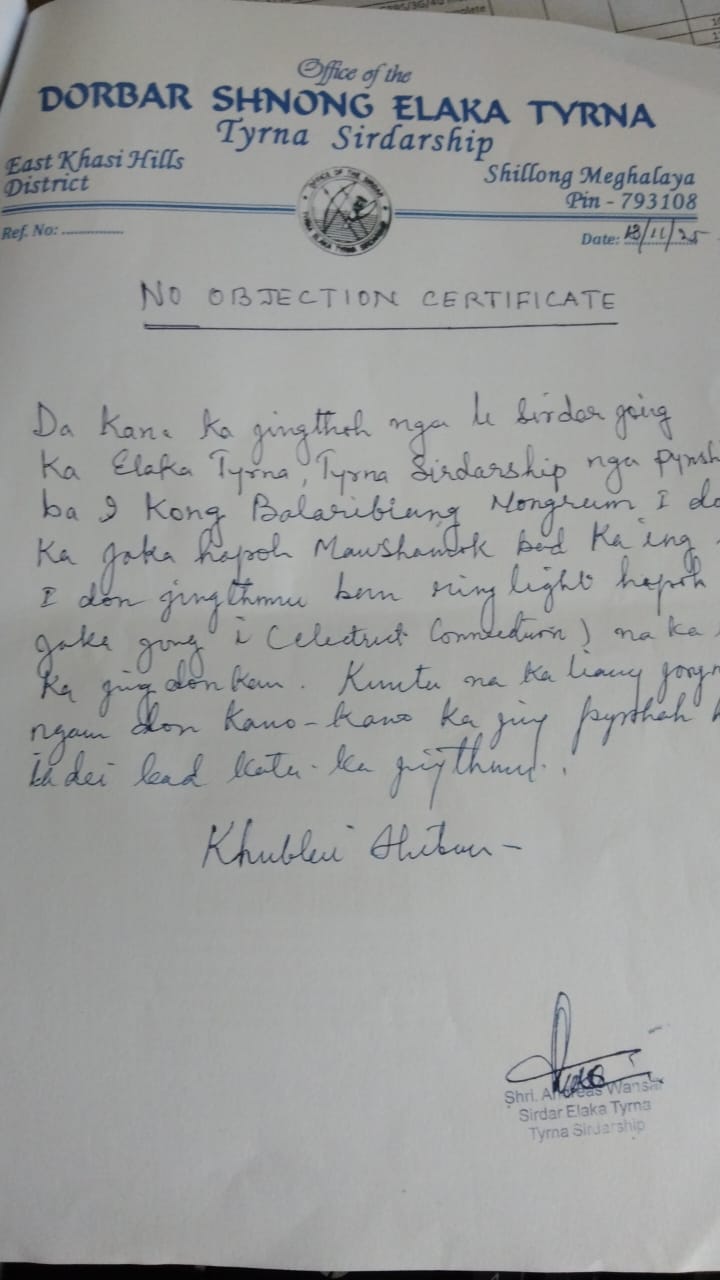 Office of the
DORBAR SHNONG ELAKA TYRNA
Tyrna Sirdarship
East Khasi Hills
District
Shillong Meghalaya
Pin - 793108
Ref. No: ..............
Date: 18/11/25
NO OBJECTION CERTIFICATE
Da Kane ka jingthoh nga u Sirdar jong
Ka Elaka Tyrna, Tyrna Sirdarship nga pynsh
ba I Kong Balaribiang Nongrum I do
Ka jaka hapoh Mawshamok bad Ka ïng
I don jingthmu ban ring light hapoh
jaka jong i (Electric Connection) na ka
ka jingdonkam. Kumta na ka liang jong
ngam don kano-kano ka jing pyrshah
ïa dei bad kata ka jingthmu.
Khublei Shibun -
Shri. Andreas
Sirdar Elaka Tyrna
Tyrna Sirdarship